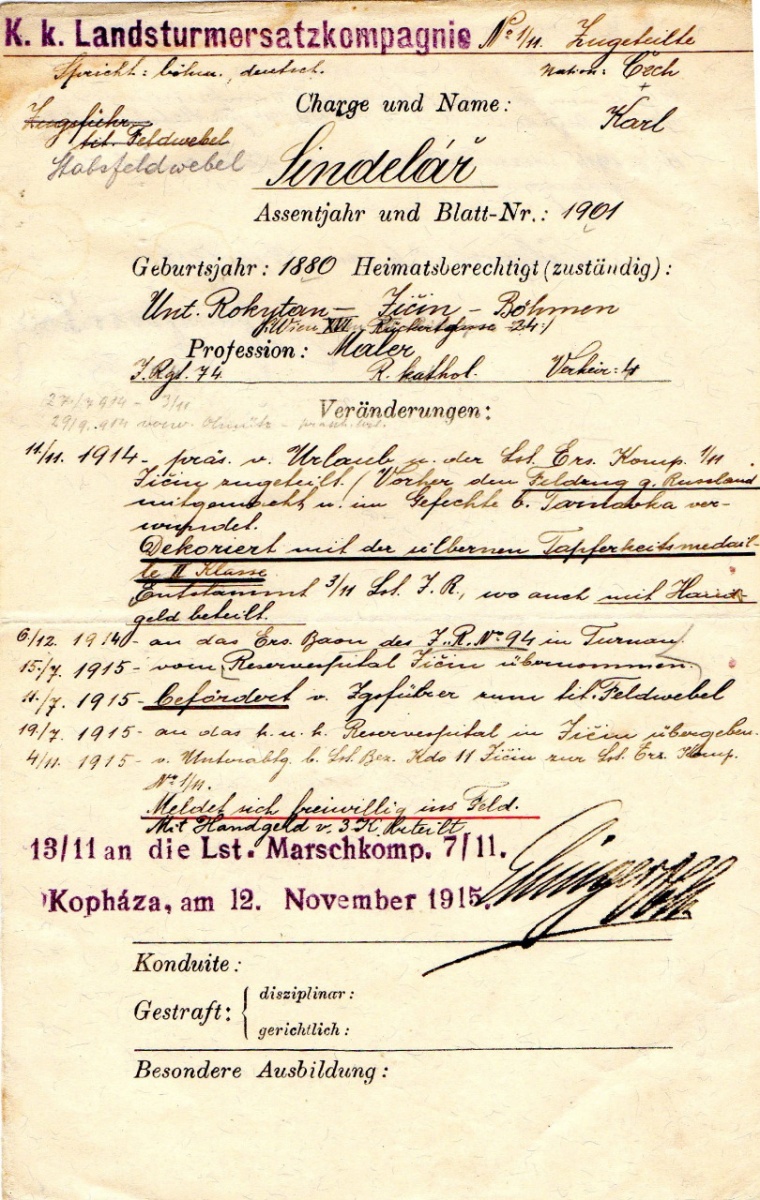 K. k. Landsturmersatzkompagnie No 1/11 Zugeteilte
Spricht: böhm., deutsch. Nation: Čech
Charge und Name: Karl
Zugsführer
tit. Feldwebel
Stabsfeldwebel
Sindelář
Assentjahr und Blatt-Nr.: 1901
Geburtsjahr: 1880 Heimatsberechtigt (zuständig):
Unt. Rokytan – Jičin – Böhmen
Wien XVI 34
Profession: Maler
I. Rgt. 74 R. kathol. Verheir: 4
Veränderungen:
27/7 914 – 3/11
29/9. 914 vom. Olmütz –
11/11. 1914 – präs. v. Urlaub u. der Lst. Ers. Komp. 1/11
Jičin zugeteilt. / Vorher den Feldzug g. Russland
mitgemacht u. im Gefechte b. Tarnavka ver-
wundet.
Dekoriert mit der silbernen Tapferkeitsmedail-
le II Klasse
Entstammt 3/11 Lst. I. R., wo auch mit Hand-
geld beteilt.
6./12. 1914 – an das Ers. Baon des I. R. No 94 in Turnau.
15./7. 1915 – vom Reservespital Jičin übernommen.
11./7. 1915 – Befördert v. Zgsführer zum tit. Feldwebel
19/7. 1915 – an das k. u. k. Reservespital in Jičin übergeben.
4/11. 1915 – v. Unterabtg. b. Lst. Bez. Kdo 11 Jičin zur Lst. Ers. Komp.
No 1/11.
Meldet sich freiwillig ins Feld.
Mit Handgeld v. 3 K beteilt
13/11 an die Lst. Marschkomp. 7/11.
Kopháza, am 12. November 1915.
Konduite:
Gestraft: disziplinar:
gerichtlich:
Besondere Ausbildung: